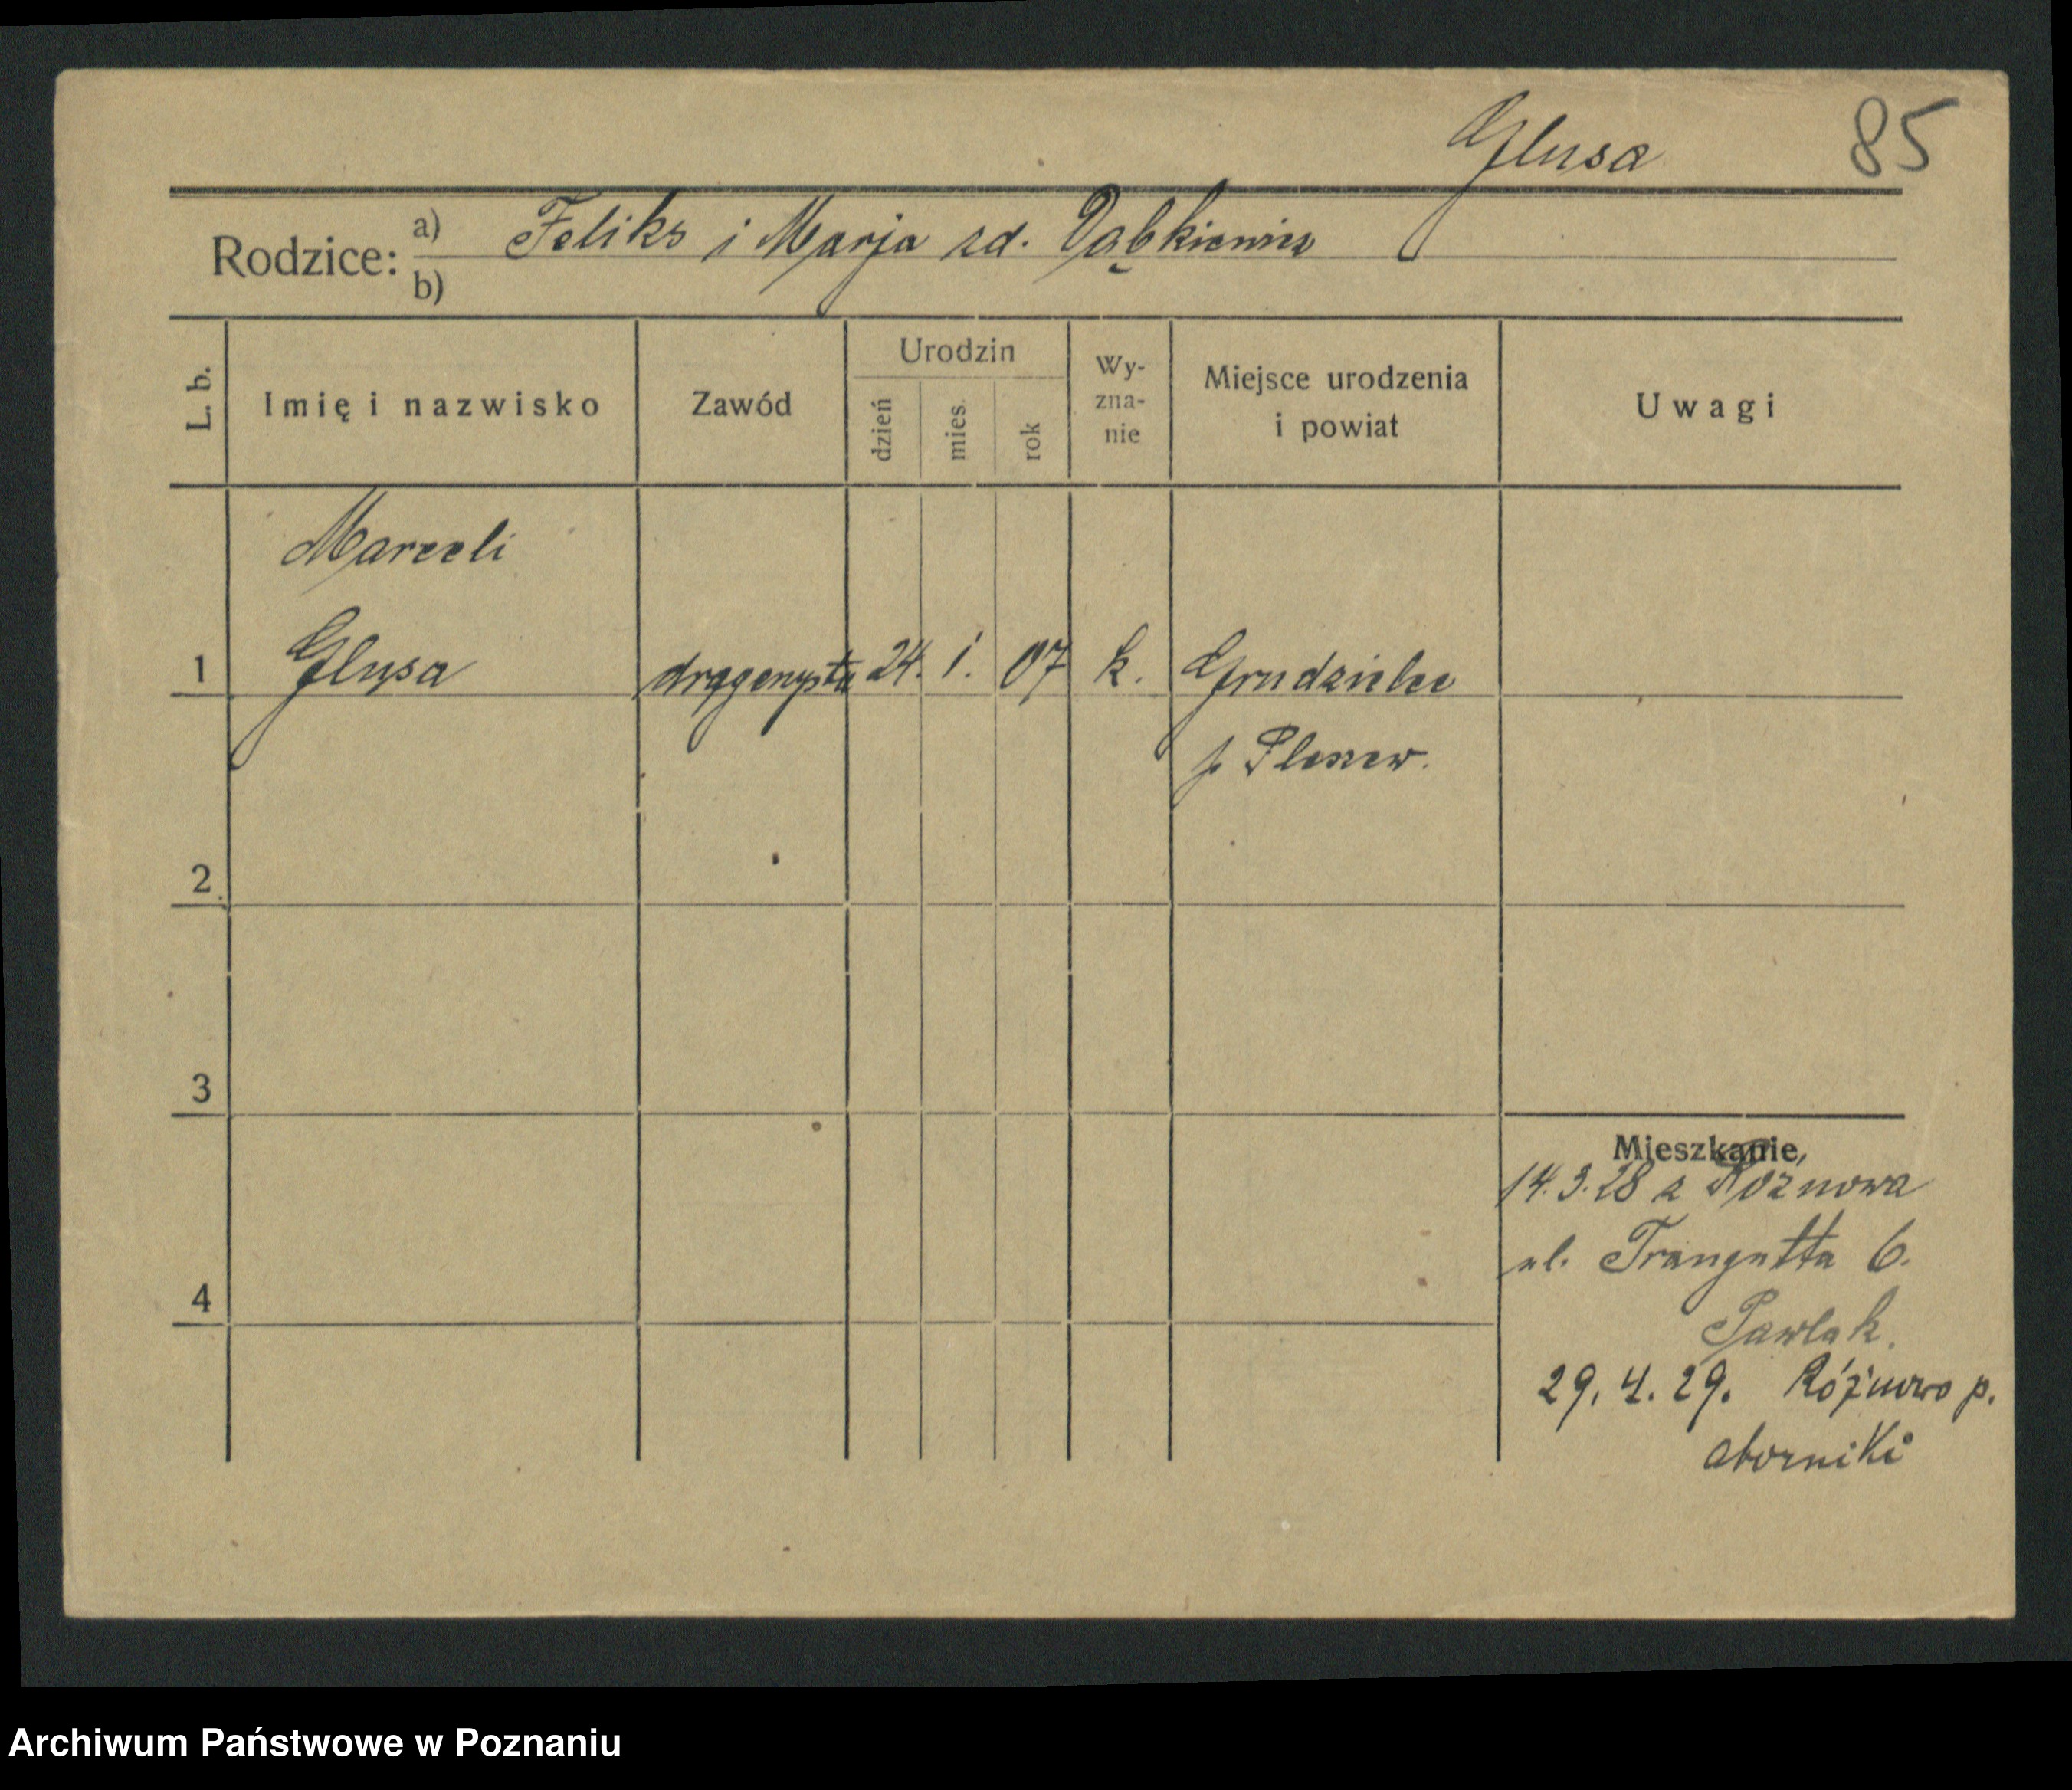 Glusa 85
Rodzice: a) Feliks i Marja zd. Dąbkiewicz
b)
L. b. Imię i nazwisko Zawód Urodzin dzień mies. rok Wy-zna-nie Miejsce urodzenia i powiat Uwagi
Marceli
1 Glusa 24. 1. 07 k. Grudzielec
p. Pleszew.
2
3
Mieszkanie,
14.3.28 z Rożnowa
ul. Traugutta 6.
4 Pawlak.
29.4.29. Różnowo p.
Oborniki
Archiwum Państwowe w Poznaniu